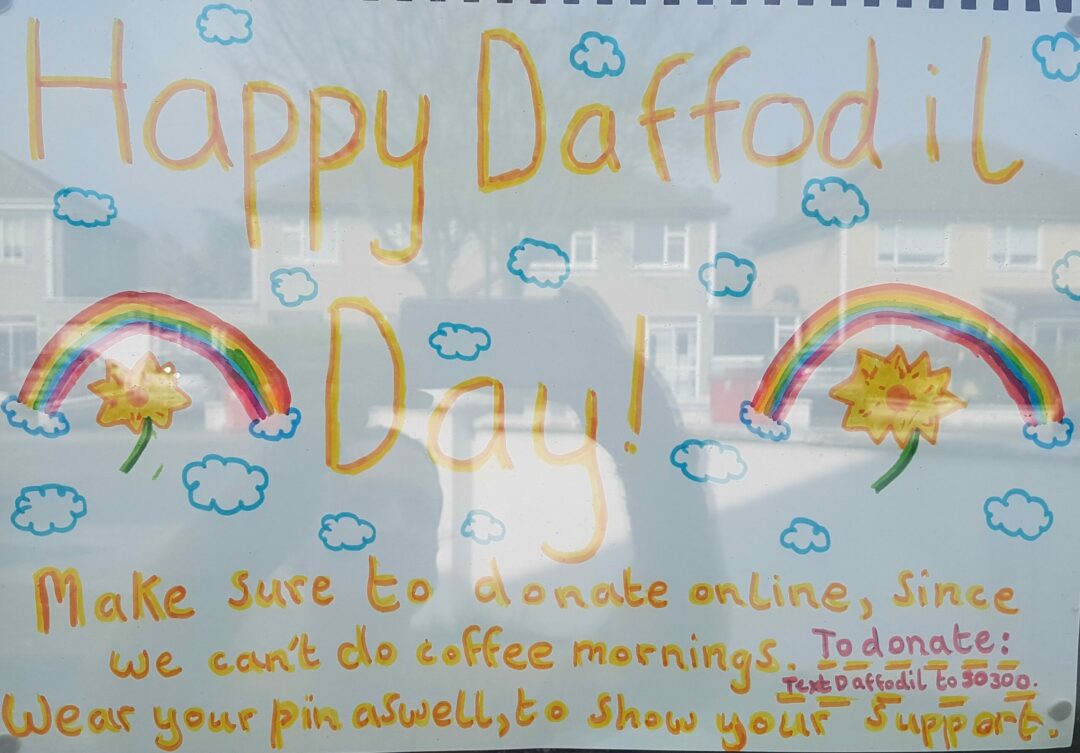 Happy Daffodil
Day!
Make sure to donate online, since
we can't do coffee mornings.
To donate:
Text Daffodil to 50300.
Wear your pin aswell, to show your support.